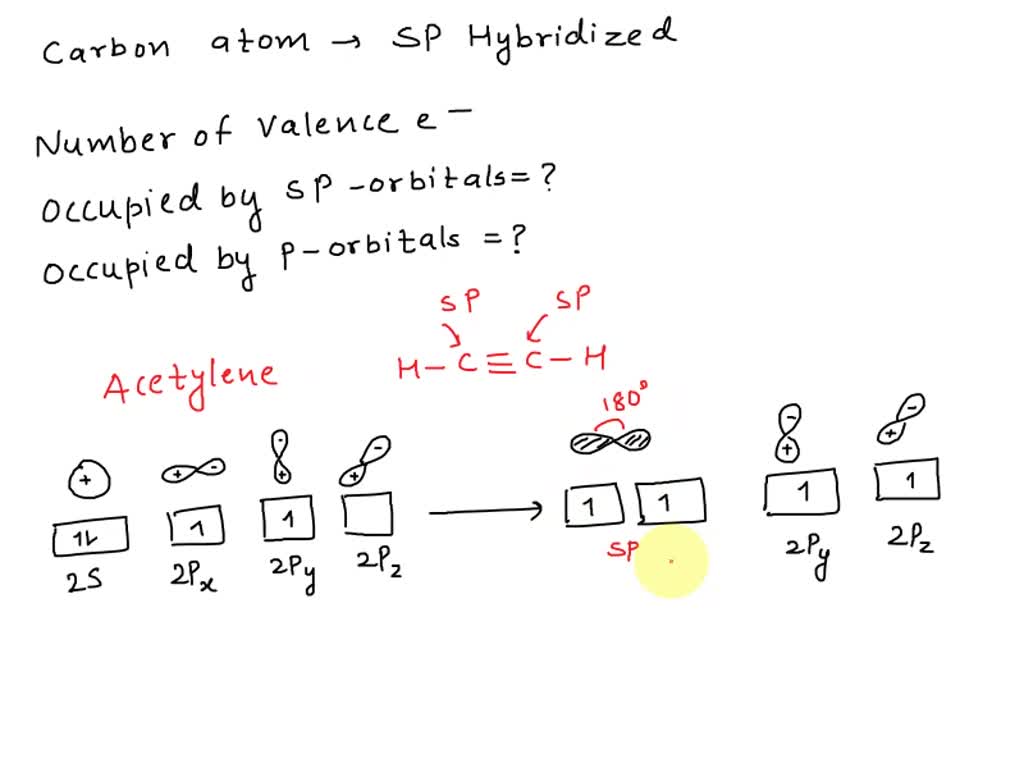 Carbon atom → SP Hybridized
Number of Valence e⁻
Occupied by SP-orbitals=?
Occupied by P-orbitals =?
SP SP
Acetylene H-C≡C-H
180°
+ + - - + - + - + - +
1L 1 1 1 1 1 1
2S 2Px 2Py 2Pz SP 2Py 2Pz